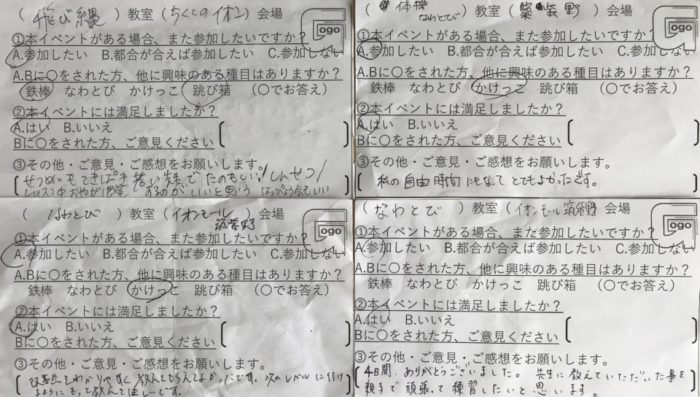 (飛び縄)教室(ちくしのイオン)会場
ogo
①本イベントがある場合、また参加したいですか?
A.参加したい B.都合が合えば参加したい C.参加しない
A.Bに〇をされた方、他に興味のある種目はありますか?
鉄棒 なわとび かけっこ 跳び箱 (〇でお答え)
②本イベントには満足しましたか?
A.はい B.いいえ
Bに〇をされた方、ご意見ください
③その他・ご意見・ご感想をお願いします。
(体操 なわとび)教室(筑紫野)会場
ogo
①本イベントがある場合、また参加したいですか?
A.参加したい B.都合が合えば参加したい C.参加しない
A.Bに〇をされた方、他に興味のある種目はありますか?
鉄棒 なわとび かけっこ 跳び箱 (〇でお答え)
②本イベントには満足しましたか?
A.はい B.いいえ
Bに〇をされた方、ご意見ください
③その他・ご意見・ご感想をお願いします。
私の自由時間にもなてとてもよかったです。
(なわとび)教室(イオンモール筑紫野)会場
ogo
①本イベントがある場合、また参加したいですか?
A.参加したい B.都合が合えば参加したい C.参加しない
A.Bに〇をされた方、他に興味のある種目はありますか?
鉄棒 なわとび かけっこ 跳び箱 (〇でお答え)
②本イベントには満足しましたか?
A.はい B.いいえ
Bに〇をされた方、ご意見ください
③その他・ご意見・ご感想をお願いします。
わかりやすく教えてもらえてよかったです。次のレベルに
ようにもって教えて ほしいです。
(なわとび)教室(イオンモール筑紫野)会場
ogo
①本イベントがある場合、また参加したいですか?
A.参加したい B.都合が合えば参加したい C.参加しない
A.Bに〇をされた方、他に興味のある種目はありますか?
鉄棒 なわとび かけっこ 跳び箱 (〇でお答え)
②本イベントには満足しましたか?
A.はい B.いいえ
Bに〇をされた方、ご意見ください
③その他・ご意見・ご感想をお願いします。
4日間、ありがとうございました。先生に教えていただいた事を
親子で頑張って練習したいと思います。